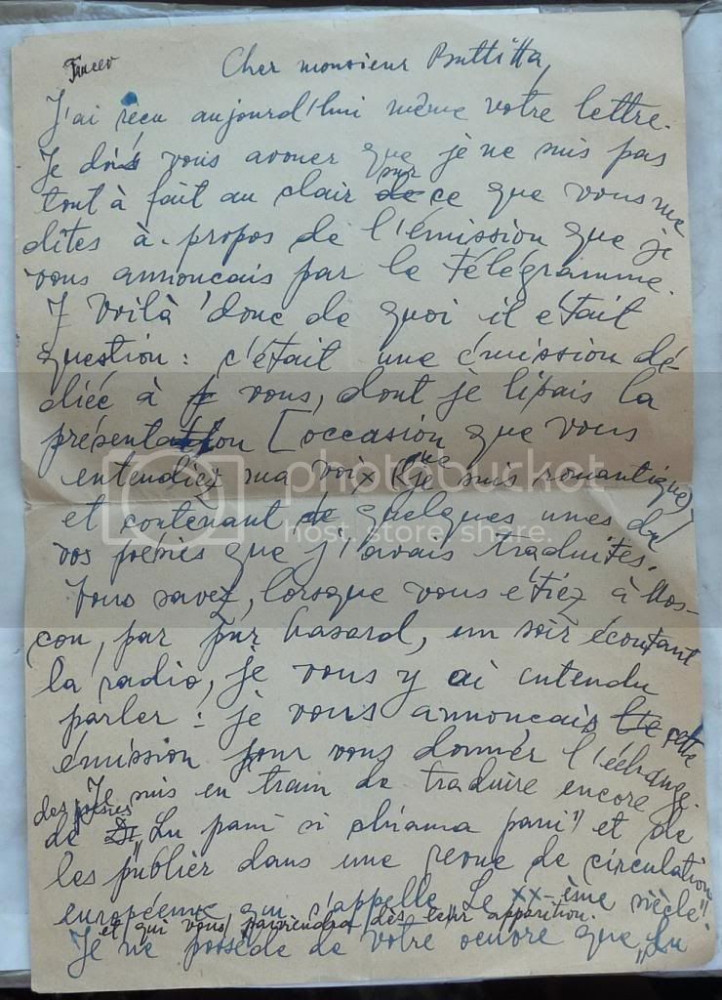 Cher monsieur Buttitta,
J'ai reçu aujourd'hui même votre lettre.
Je dois vous avouer que je ne suis pas
tout à fait au clair sur ce que vous me
dites à propos de l'émission que je
vous annoncais par le télégramme.
Voilà donc de quoi il était
question : c'était une émission dé-
diée à vous, dont je lisais la
présentation [occasion que vous
entendiez ma voix (que je suis romantique)]
et contenant quelques unes de
vos poésies que j'avais traduites.
Vous savez, lorsque vous étiez à Mos-
cou, par pur hasard, un soir écoutant
la radio, je vous y ai entendu
parler : je vous annoncais cette
émission pour vous donner l'échange.
Je suis en train de traduire encore
des poésies
de „Lu pani si chiama pani" et de
les publier dans une revue de circulation
européenne qui s'appelle „Le XX-ème siècle"
et qui vous parviendra dès leur apparition.
Je ne possède de votre oeuvre que „Lu
photobucket
host. store. share.